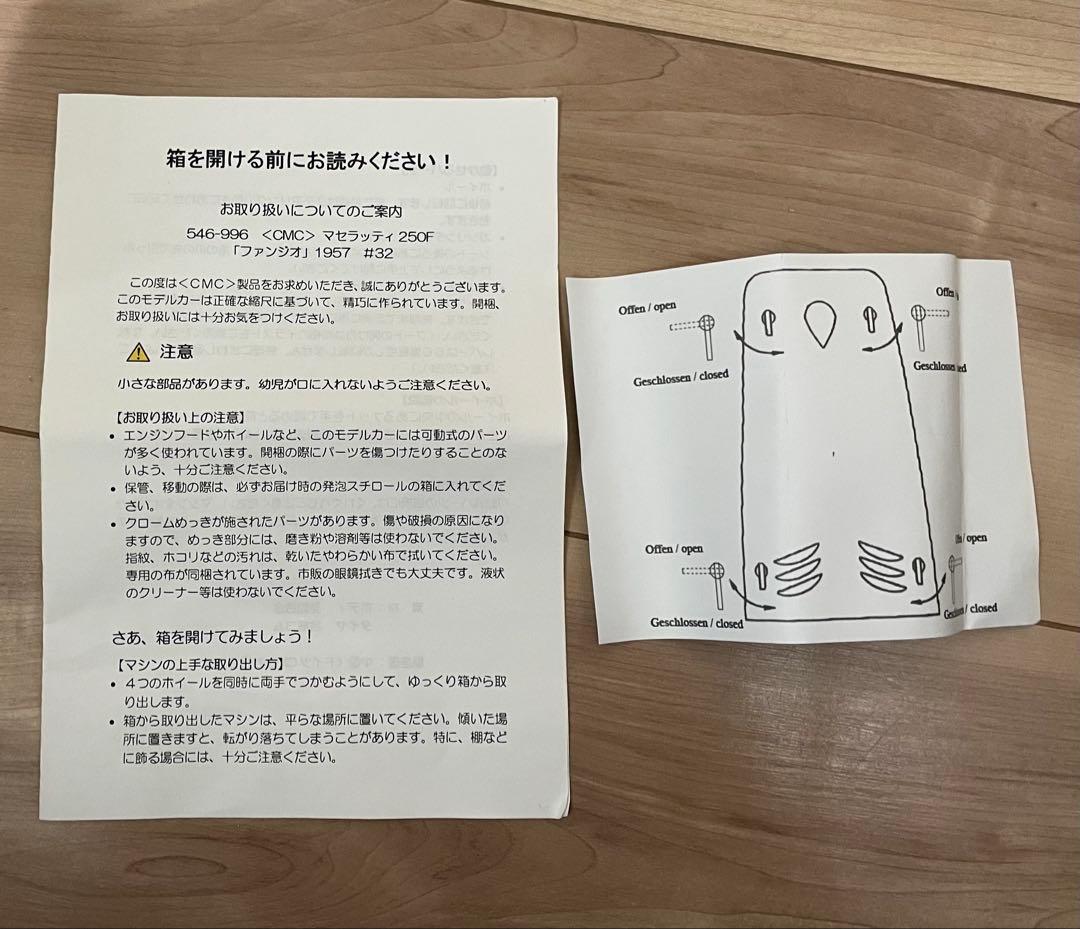 箱を開ける前にお読みください！
お取り扱いについてのご案内
546-996 ＜CMC＞ マセラッティ 250F
「ファンジオ」1957 #32
この度は＜CMC＞製品をお求めいただき、誠にありがとうございます。
このモデルカーは正確な縮尺に基づいて、精巧に作られています。開梱、
お取り扱いには十分お気をつけください。
注意
小さな部品があります。幼児が口に入れないようご注意ください。
【お取り扱い上の注意】
• エンジンフードやホイールなど、このモデルカーには可動式のパーツ
が多く使われています。開梱の際にパーツを傷つけたりすることのな
いよう、十分ご注意ください。
• 保管、移動の際は、必ずお届け時の発泡スチロールの箱に入れてくだ
さい。
• クロームめっきが施されたパーツがあります。傷や破損の原因になり
ますので、めっき部分には、磨き粉や溶剤等は使わないでください。
指紋、ホコリなどの汚れは、乾いたやわらかい布で拭いてください。
専用の布が同梱されています。市販の眼鏡拭きでも大丈夫です。液状
のクリーナー等は使わないでください。
さあ、箱を開けてみましょう！
【マシンの上手な取り出し方】
• 4つのホイールを同時に両手でつかむようにして、ゆっくり箱から取
り出します。
• 箱から取り出したマシンは、平らな場所に置いてください。傾いた場
所に置きますと、転がり落ちてしまうことがあります。特に、棚など
に飾る場合には、十分ご注意ください。
Offen / open
Geschlossen / closed
Offen
Geschlossen
Offen / open
Geschlossen / closed
/ open
/ closed